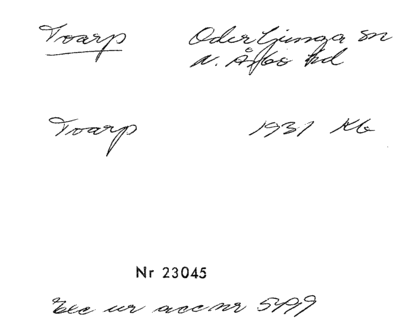 Tvarp Oderljunga sn
N. Åsbo hd
Tvarp 1931 Kb
Nr 23045
Exc ur acc.nr 5919